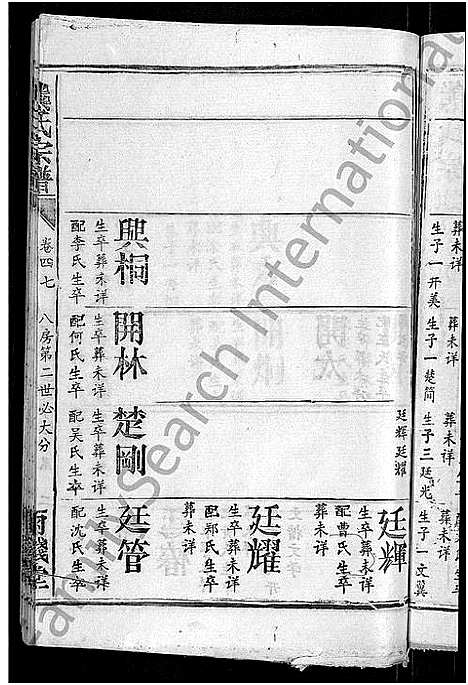 葬未详
生子一开美
葬未详
生子一楚简
葬未详
生子三廷光
葬未详
生子一文翼
廷輝廷耀
興桐
生卒葬未详
配李氏生卒
開林
生卒葬未详
配何氏生卒
楚剛
生卒葬未详
配吴氏生卒
廷輝
生卒葬未详
配曹氏生卒
葬未详
廷耀
生卒葬未详
配郑氏生卒
葬未详
廷管
生卒葬未详
配沈氏生卒
氏宗譜
卷四七
八房第二世必大分
FamilySearch International